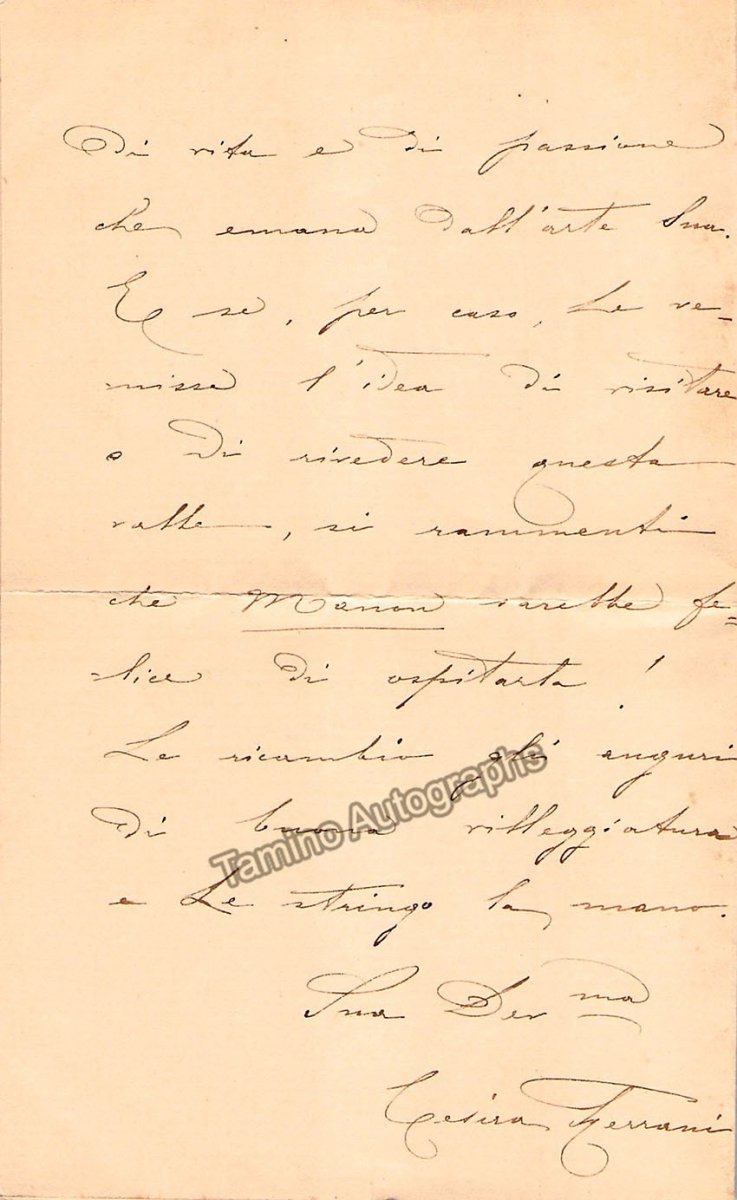 Di vita e di passione
che emana dall'arte Sua.
E se, per caso, Le ve-
nisse l'idea di visitare
o di rivedere questa
valle, si rammenti
che Manon sarebbe fe=
=lice di ospitarla!
Le ricambio gli auguri
di buona villeggiatura
e Le stringo la mano.
Sua Dev ma
Cesira Ferrani
Tamino Autographs